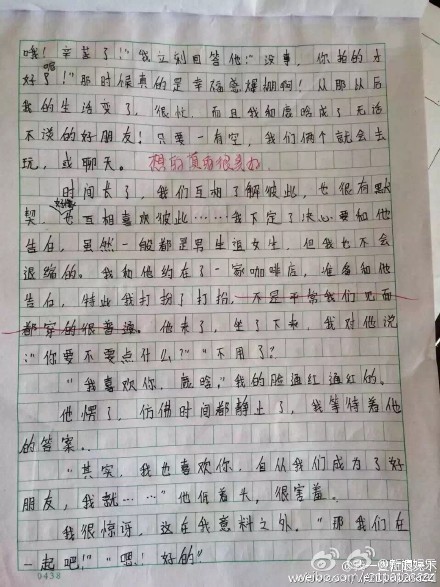 哦！辛苦了！"我立刻回答他："没事，你拍的才
好了！"那时候真的是幸福感爆棚啊！从那以后
我的生活变了，很忙，而且我和鹿晗成了无话
不说的好朋友！只要一有空，我们俩个就会去
玩，或聊天。想的真的很美好
时间长了，我们互相了解彼此，也很有默
契，也好像互相喜欢彼此……我下定了决心要和他
告白，虽然一般都是男生追女生，但我也不会
退缩的。我和他约在了一家咖啡店，准备和他
告白，特此我打扮了打扮，不是平常我们见面
都穿的很普通。他来了，坐了下来，我对他说
："你要不要点什么？""不用了？
"我喜欢你，鹿晗。"我的脸通红通红的。
他愣了，仿佛时间都静止了，我等待着他
的答案。
"其实，我也喜欢你，自从我们成为了好
朋友，我就……"他低着头，很害羞。
我很惊讶，这在我意料之外。"那我们在
一起吧！""嗯！好的"
0438